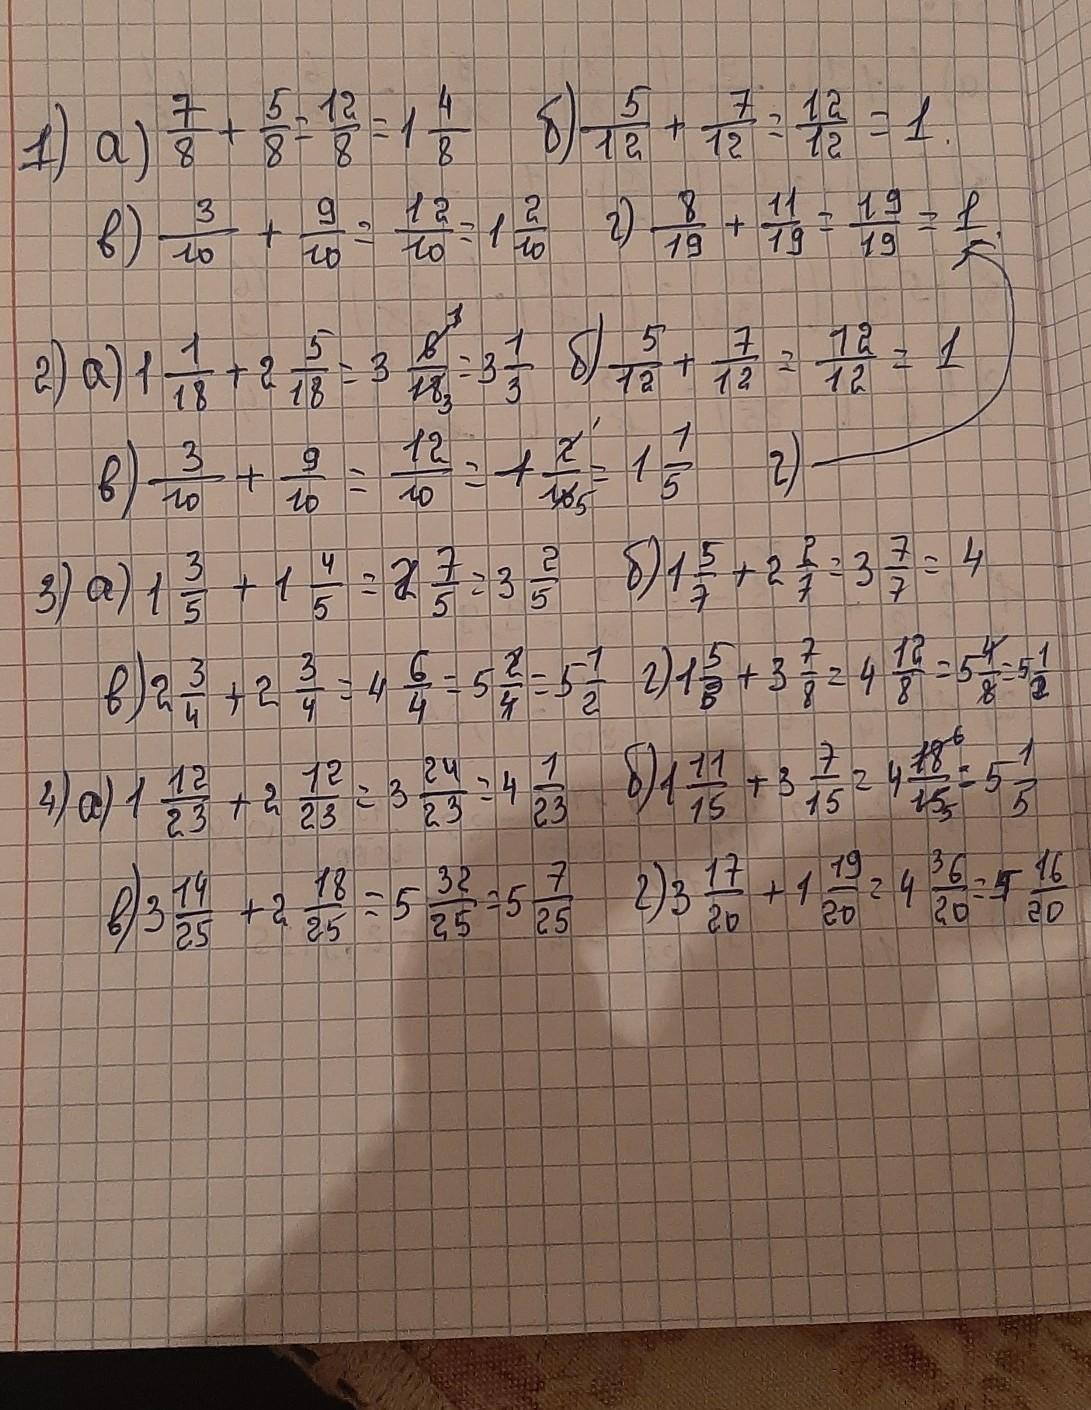 1) а) 7/8 + 5/8 = 12/8 = 1 4/8 б) 5/12 + 7/12 = 12/12 = 1.
в) 3/10 + 9/10 = 12/10 = 1 2/10 г) 8/19 + 11/19 = 19/19 = 1.
2) а) 1 1/18 + 2 5/18 = 3 6/18 = 3 1/3 б) 5/12 + 7/12 = 12/12 = 1
в) 3/10 + 9/10 = 12/10 = 1 2/10 = 1 1/5 г)
3) а) 1 3/5 + 1 4/5 = 2 7/5 = 3 2/5 б) 1 5/7 + 2 2/7 = 3 7/7 = 4
в) 2 3/4 + 2 3/4 = 4 6/4 = 5 2/4 = 5 1/2 г) 1 5/8 + 3 7/8 = 4 12/8 = 5 4/8 = 5 1/2
4) а) 1 12/23 + 2 12/23 = 3 24/23 = 4 1/23 б) 1 11/15 + 3 7/15 = 4 18/15 = 5 1/5
в) 3 14/25 + 2 18/25 = 5 32/25 = 5 7/25 г) 3 17/20 + 1 19/20 = 4 36/20 = 5 16/20